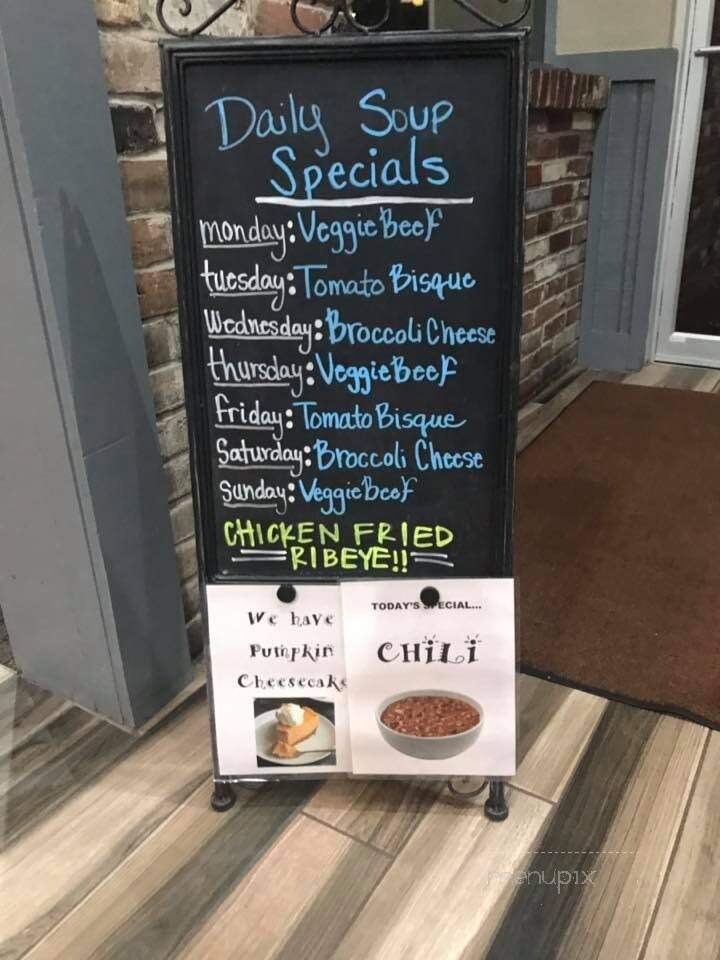 Daily Soup
Specials
monday: Veggie Beef
tuesday: Tomato Bisque
Wednesday: Broccoli Cheese
thursday: Veggie Beef
friday: Tomato Bisque
Saturday: Broccoli Cheese
Sunday: Veggie Beef
CHICKEN FRIED
RIBEYE!!
We have
Pumpkin
Cheesecake
TODAY'S SPECIAL...
CHiLi
menupix